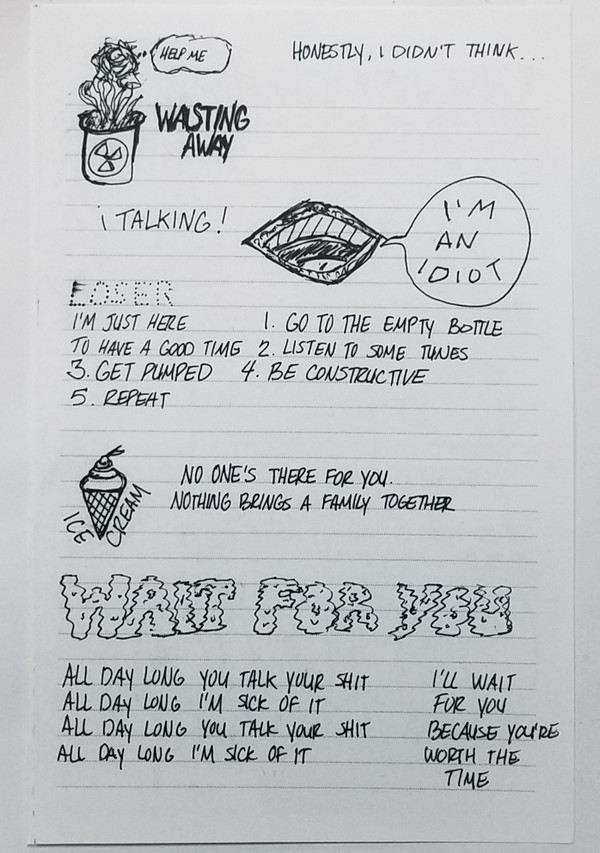 HELP ME
HONESTLY, I DIDN'T THINK...
WASTING
AWAY
¡TALKING!
I'M
AN
IDIOT
LOSER
I'M JUST HERE
TO HAVE A GOOD TIME
1. GO TO THE EMPTY BOTTLE
2. LISTEN TO SOME TUNES
3. GET PUMPED 4. BE CONSTRUCTIVE
5. REPEAT
ICE CREAM
NO ONE'S THERE FOR YOU.
NOTHING BRINGS A FAMILY TOGETHER
WAIT FOR YOU
ALL DAY LONG YOU TALK YOUR SHIT
ALL DAY LONG I'M SICK OF IT
ALL DAY LONG YOU TALK YOUR SHIT
ALL DAY LONG I'M SICK OF IT
I'LL WAIT
FOR YOU
BECAUSE YOU'RE
WORTH THE
TIME